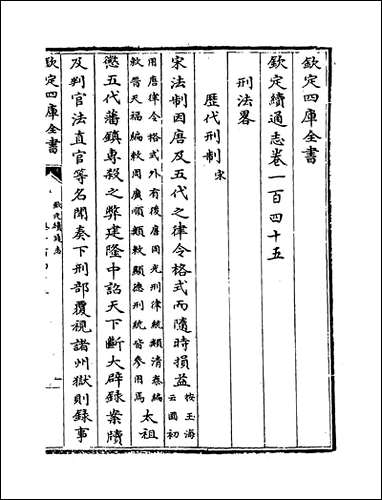 欽定四庫全書
欽定續通志卷一百四十五
刑法畧
歷代刑制 宋
宋法制因唐及五代之律令格式而隨時損益 按玉海云國初
用唐律令格式外有後唐同光刑律統類清泰編
敕晉天福編敕周廣順類敕顯德刑統皆參用焉 太祖
懲五代藩鎮專殺之弊建隆中詔天下斷大辟録案牘
及判官法直官等名聞奏下刑部覆視諸州獄則録事
欽定四庫全書
欽定續通志
一